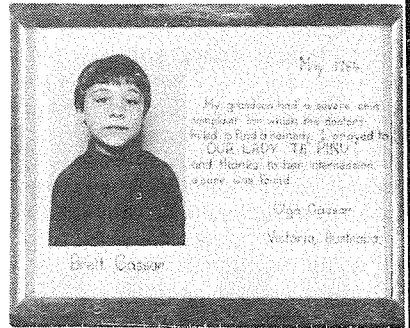 My grandson had a severe skin
complaint for which the doctors
failed to find a remedy. I prayed to
OUR LADY TA' PINU
and thanks to her intercession
a cure was found.
Olga Cassar
Victoria, Australia.
Brett Cassar